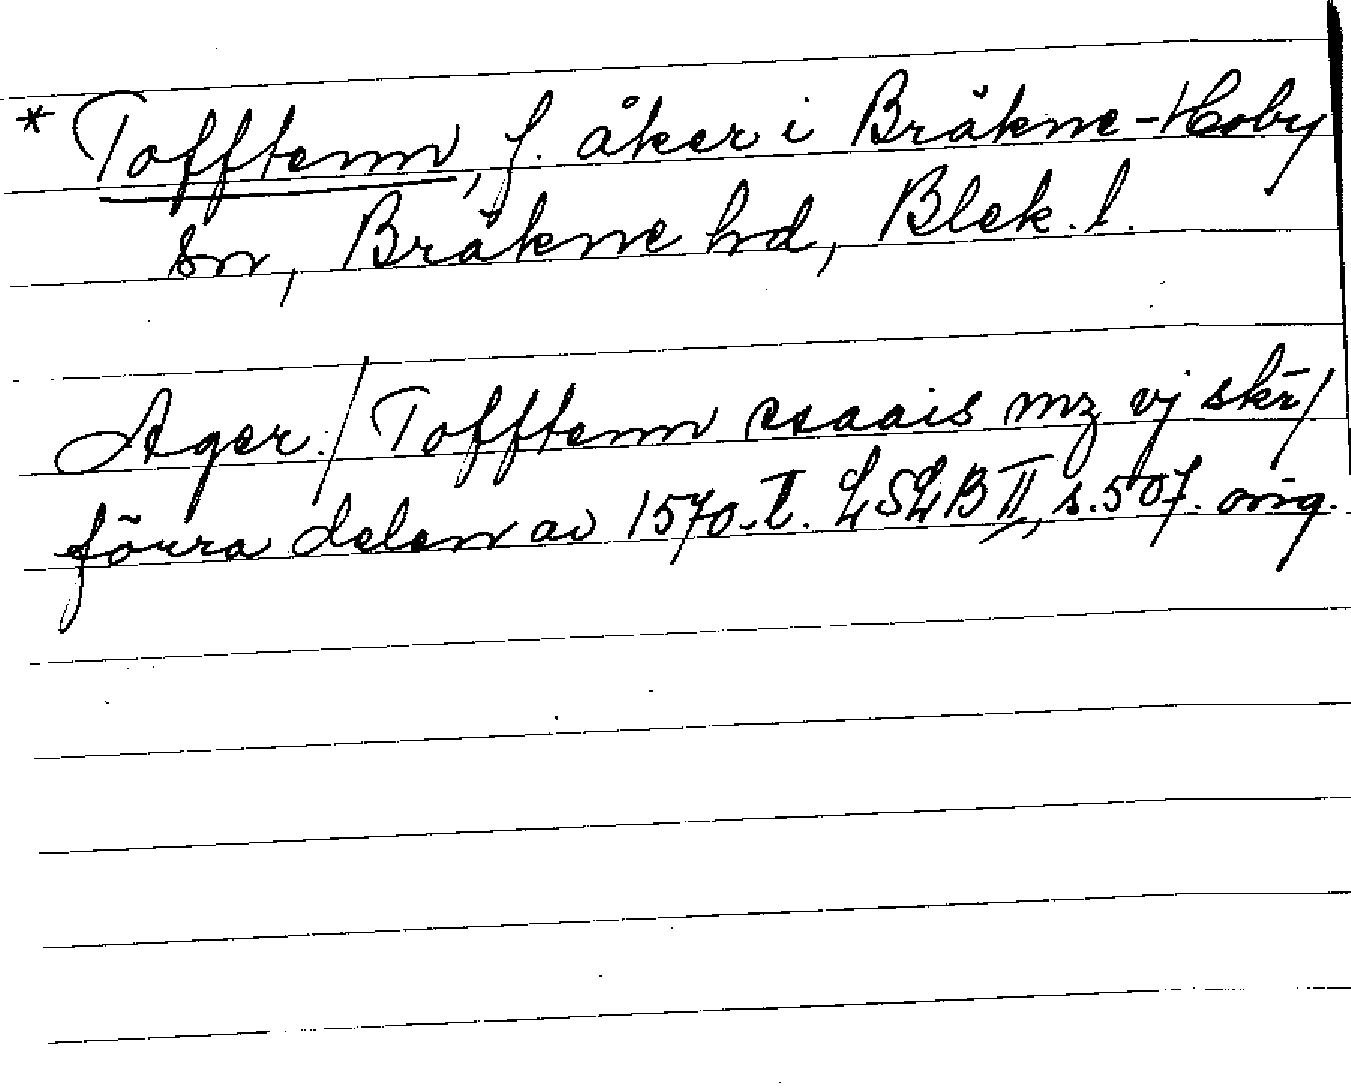 * Tofftenn, f. åker i Bräkne-Hoby
sn, Bräkne hd, Blek. l.
Ager./ Tofftenn esaais mz vj skr̄/
förra delen av 1570-t. LSLB II, s. 507. orig.